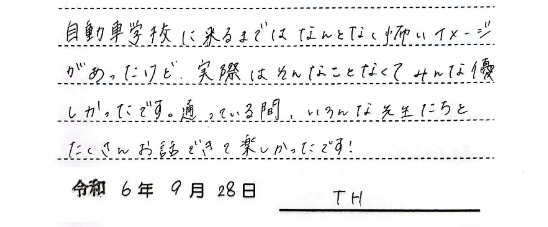 自動車学校に来るまではなんとなく怖いイメージ
があったけど、実際はそんなことなくてみんな優
しかったです。通っている間、いろんな先生たちと
たくさんお話できて楽しかったです!
令和 6年 9月 28日 TH